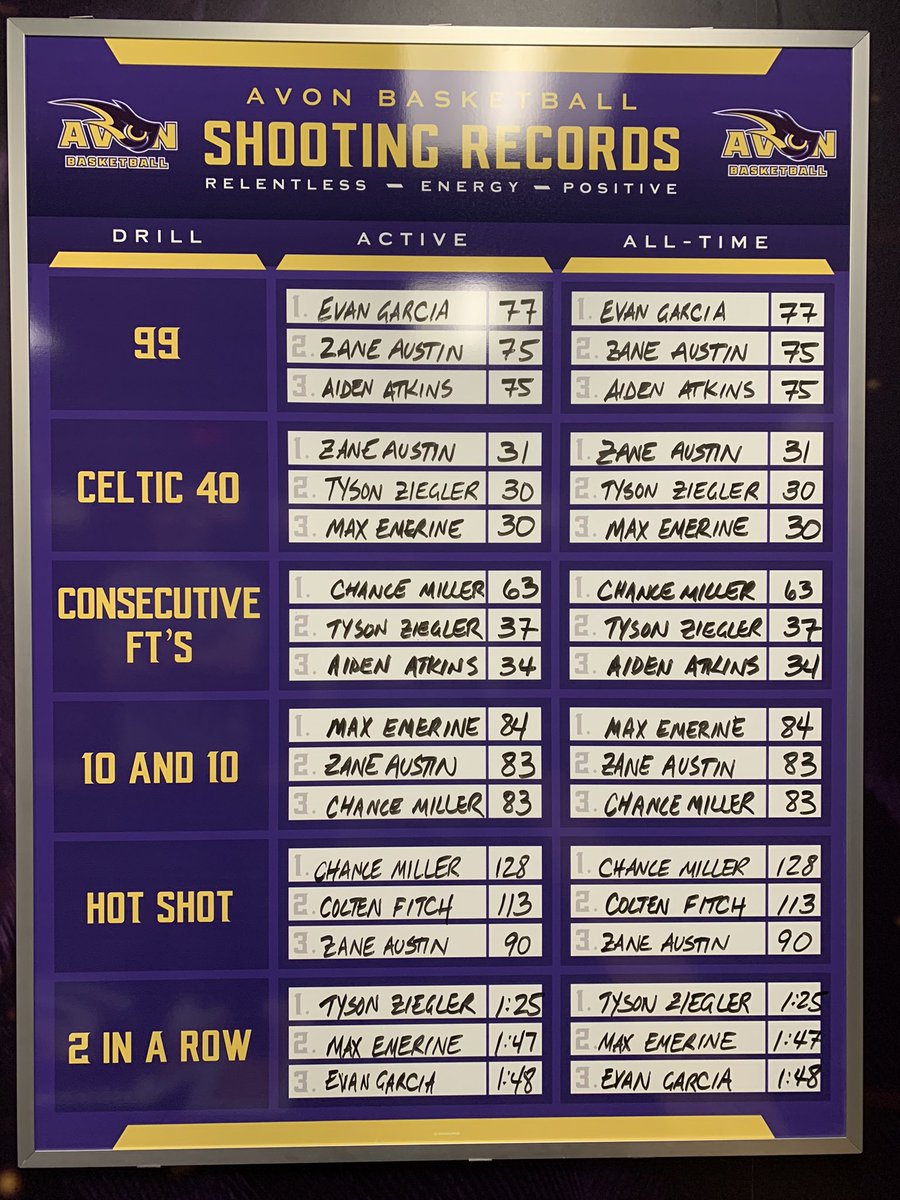 AVON BASKETBALL
AVON BASKETBALL
SHOOTING RECORDS
AVON BASKETBALL
RELENTLESS — ENERGY — POSITIVE
DRILL ACTIVE ALL-TIME
99
1. EVAN GARCIA 77 1. EVAN GARCIA 77
2. ZANE AUSTIN 75 2. ZANE AUSTIN 75
3. AIDEN ATKINS 75 3. AIDEN ATKINS 75
CELTIC 40
1. ZANE AUSTIN 31 1. ZANE AUSTIN 31
2. TYSON ZIEGLER 30 2. TYSON ZIEGLER 30
3. MAX EMERINE 30 3. MAX EMERINE 30
CONSECUTIVE
FT'S
1. CHANCE MILLER 63 1. CHANCE MILLER 63
2. TYSON ZIEGLER 37 2. TYSON ZIEGLER 37
3. AIDEN ATKINS 34 3. AIDEN ATKINS 34
10 AND 10
1. MAX EMERINE 84 1. MAX EMERINE 84
2. ZANE AUSTIN 83 2. ZANE AUSTIN 83
3. CHANCE MILLER 83 3. CHANCE MILLER 83
HOT SHOT
1. CHANCE MILLER 128 1. CHANCE MILLER 128
2. COLTEN FITCH 113 2. COLTEN FITCH 113
3. ZANE AUSTIN 90 3. ZANE AUSTIN 90
2 IN A ROW
1. TYSON ZIEGLER 1:25 1. TYSON ZIEGLER 1:25
2. MAX EMERINE 1:47 2. MAX EMERINE 1:47
3. EVAN GARCIA 1:48 3. EVAN GARCIA 1:48